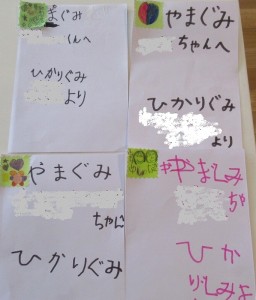 まぐみ
くんへ
ひかりぐみ
より
やまぐみ
ちゃんへ
ひかりぐみ
より
やまぐみ
ちゃんに
ひかりぐみ
やまじみ
ちゃ
ひか
りじみよ